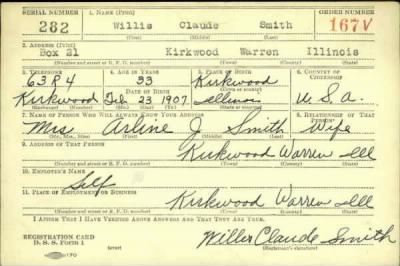 SERIAL NUMBER 1. NAME (Print) ORDER NUMBER
282 Willis Claude Smith 167V
(First) (Middle) (Last)
2. ADDRESS (Print)
Box 21 Kirkwood Warren Illinois
(Number and street or R. F. D. number) (Town) (County) (State)
3. TELEPHONE 4. AGE IN YEARS 5. PLACE OF BIRTH 6. COUNTRY OF CITIZENSHIP
63 R 4 33 Kirkwood
DATE OF BIRTH (Town or county)
Kirkwood Feb 23 1907 Illinois U.S.A.
(Exchange) (Number) (Mo.) (Day) (Yr.) (State or country)
7. NAME OF PERSON WHO WILL ALWAYS KNOW YOUR ADDRESS 8. RELATIONSHIP OF THAT PERSON
Mrs Arline J Smith Wife
(Mr., Mrs., Miss) (First) (Middle) (Last)
9. ADDRESS OF THAT PERSON
Kirkwood Warren Ill
(Number and street or R. F. D. number) (Town) (County) (State)
10. EMPLOYER'S NAME
Self
11. PLACE OF EMPLOYMENT OR BUSINESS
Kirkwood Warren Ill
(Number and street or R. F. D. number) (Town) (County) (State)
I AFFIRM THAT I HAVE VERIFIED ABOVE ANSWERS AND THAT THEY ARE TRUE.
REGISTRATION CARD
D. S. S. Form 1 (over) Willis Claude Smith
(Registrant's signature)